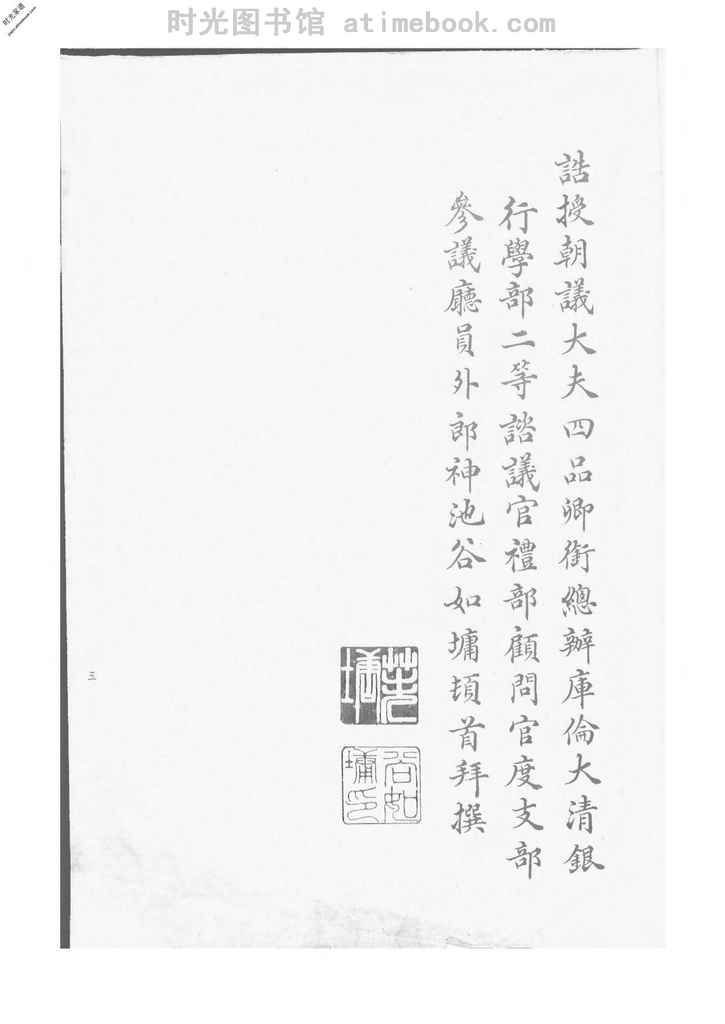 时光图书馆 atimebook.com
誥授朝議大夫四品卿銜總辦庫倫大清銀
行學部二等諮議官禮部顧問官度支部
參議廳員外郎神池谷如墉頓首拜撰
谷如墉印
三